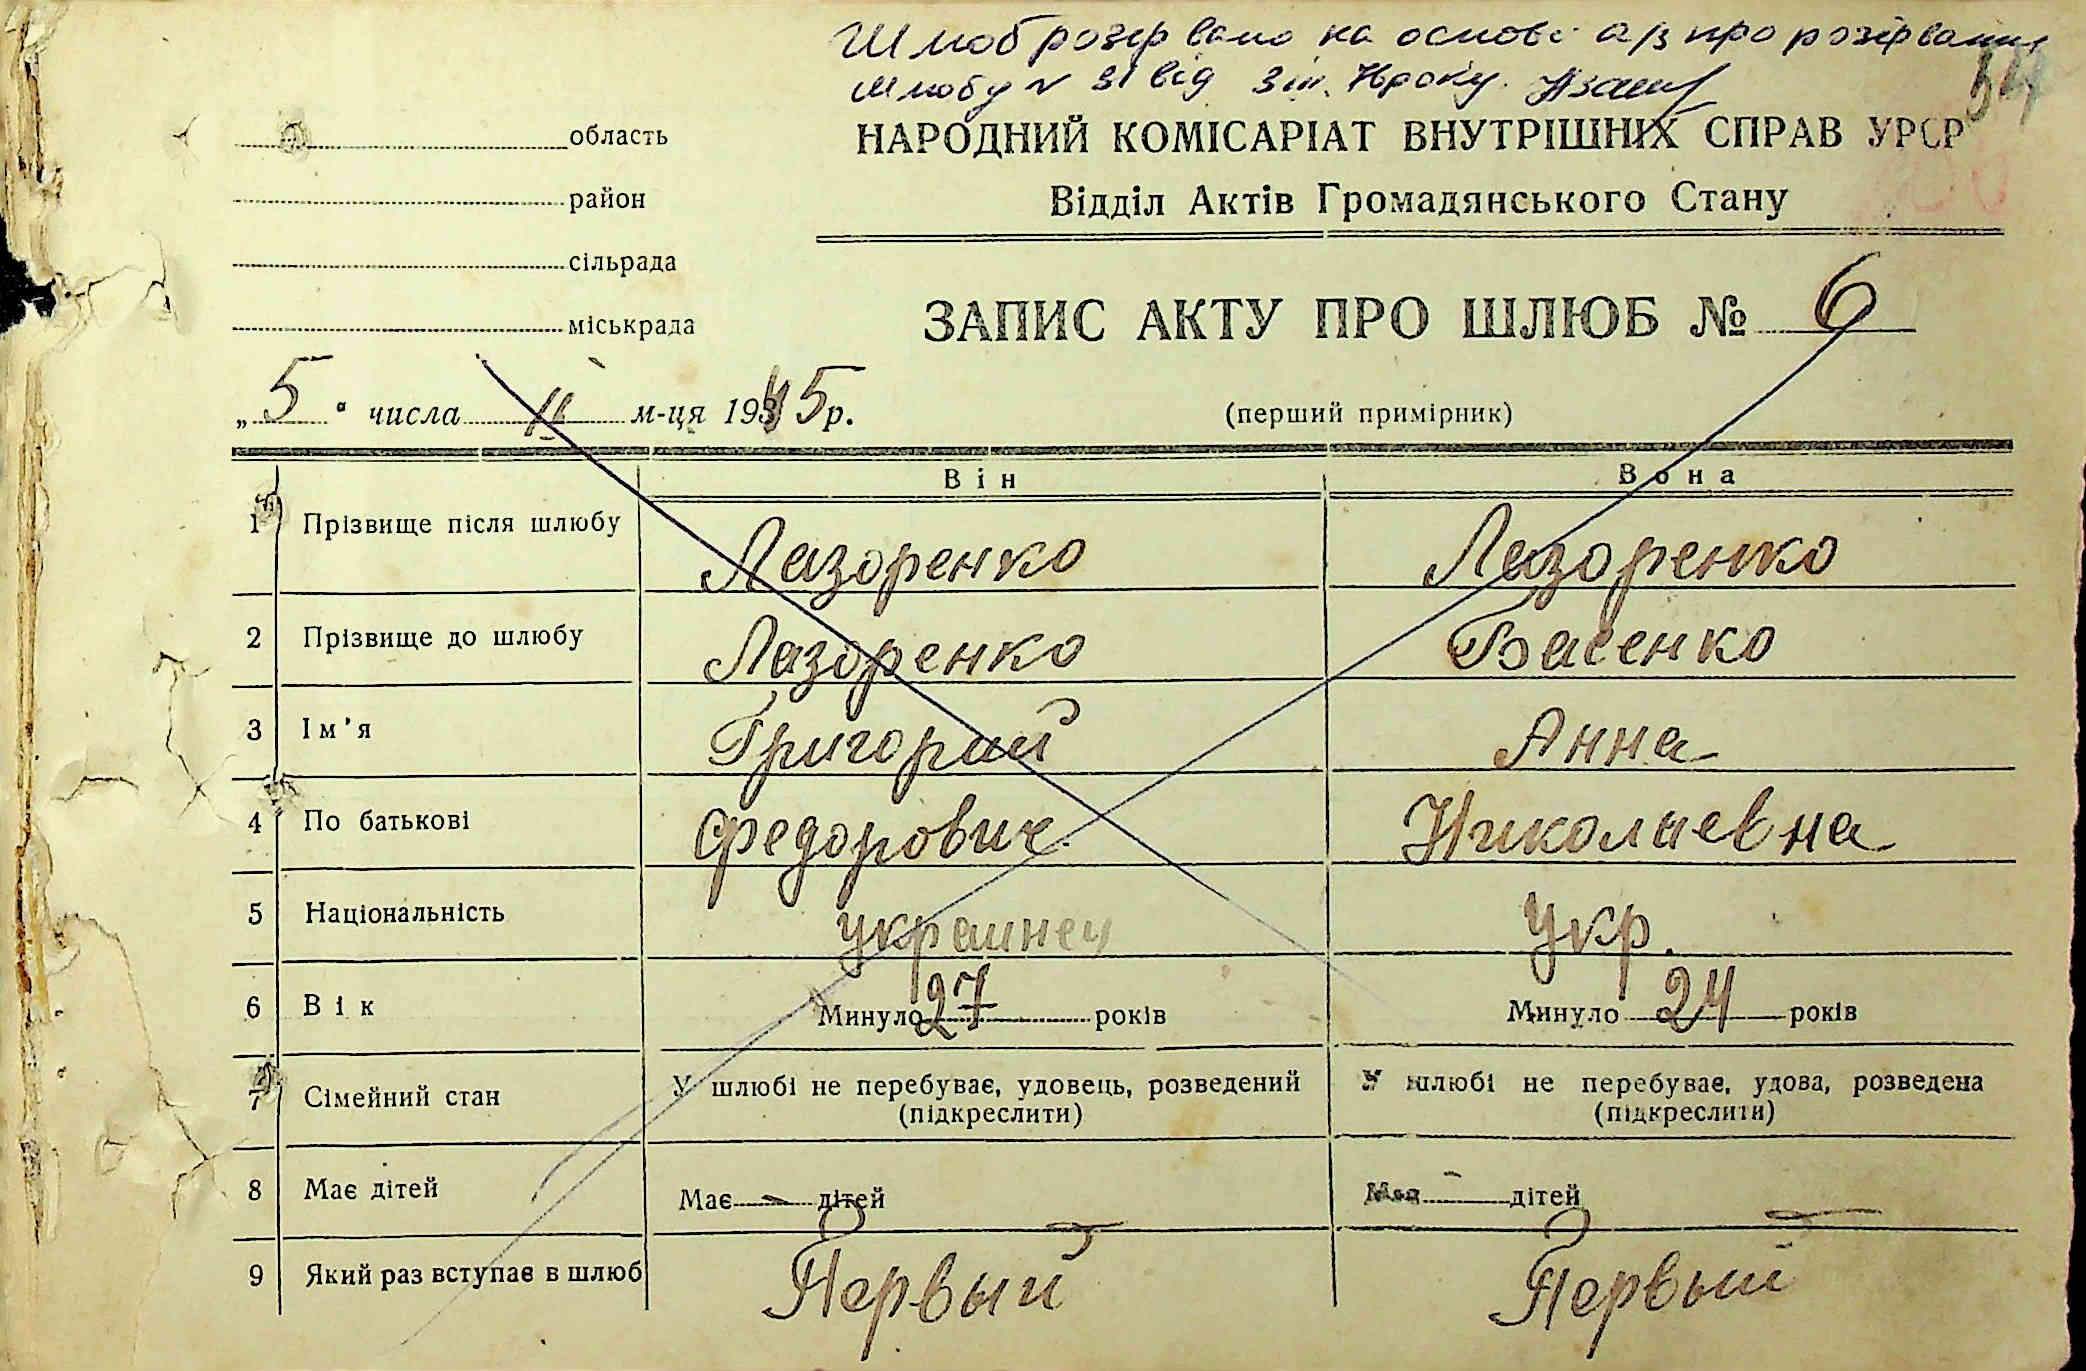 Шлюб розірвано на основі а/з про розірвання
шлюбу № 31 від
54
область
район
сільрада
міськрада
НАРОДНИЙ КОМІСАРІАТ ВНУТРІШНИХ СПРАВ УРСР
Відділ Актів Громадянського Стану
ЗАПИС АКТУ ПРО ШЛЮБ № 6
„5“ числа II м-ця 1945 р.
(перший примірник)
Він Вона
1 Прізвище після шлюбу Лазоренко Лазоренко
2 Прізвище до шлюбу Лазоренко Басенко
3 Ім'я Григорий Анна
4 По батькові Федорович Николаевна
5 Національність украинец Укр.
6 Вік Минуло 27 років Минуло 24 років
7 Сімейний стан У шлюбі не перебуває, удовець, розведений У шлюбі не перебуває, удова, розведена
(підкреслити) (підкреслити)
8 Має дітей Має - дітей Має - дітей
9 Який раз вступає в шлюб Первый Первый